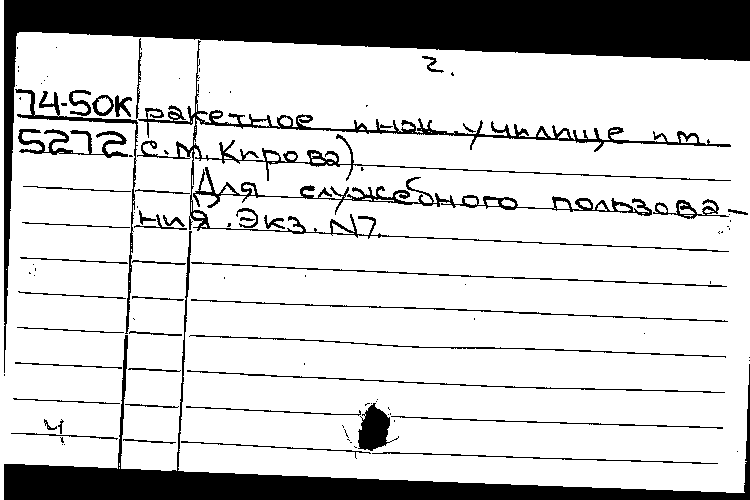 2.
74-50К ракетное инж. училище им.
5272 С.М. Кирова).
Для служебного пользова-
ния. Экз. N7.
Ч